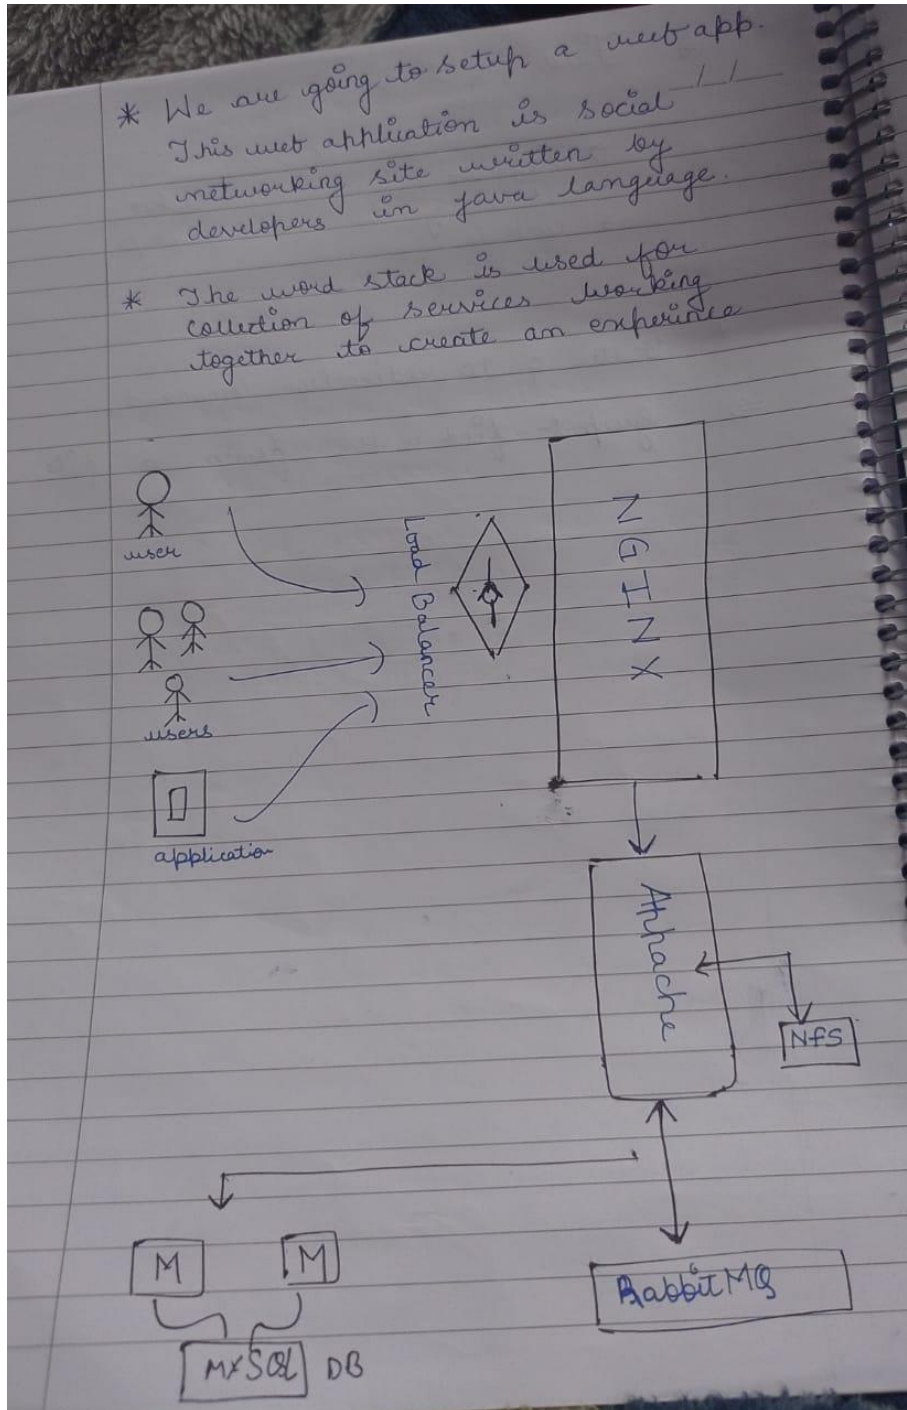 * We are going to setup a web app.
This web application is social
networking site written by
developers in java language.
* The word stack is used for
collection of services working
together to create an experince
user
users
application
Load Balancer
NGINX
Appache
NFS
M
M
MYSQL DB
RabbitMQ